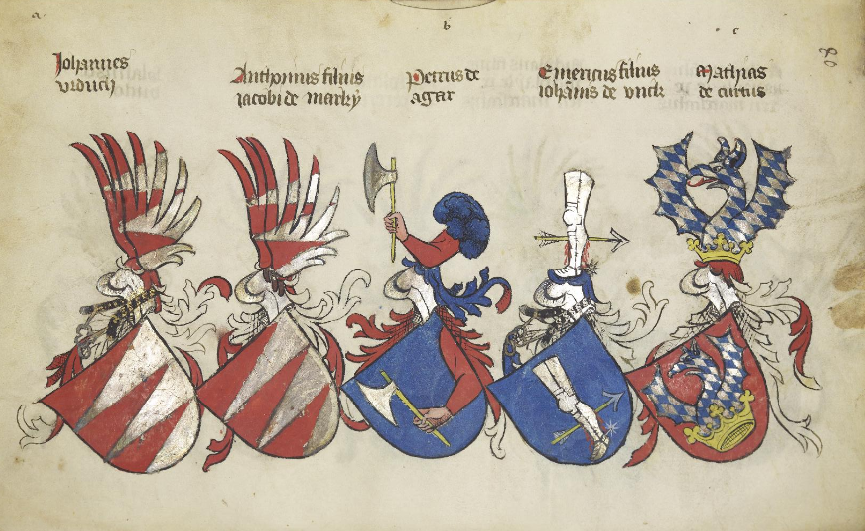 a
b
c
80
Johannes
vrduch
Anthonius filius
iacobi de marky
Petrus de
agar
Emericus filius
iohannis de vnck
Mathias
de curtus